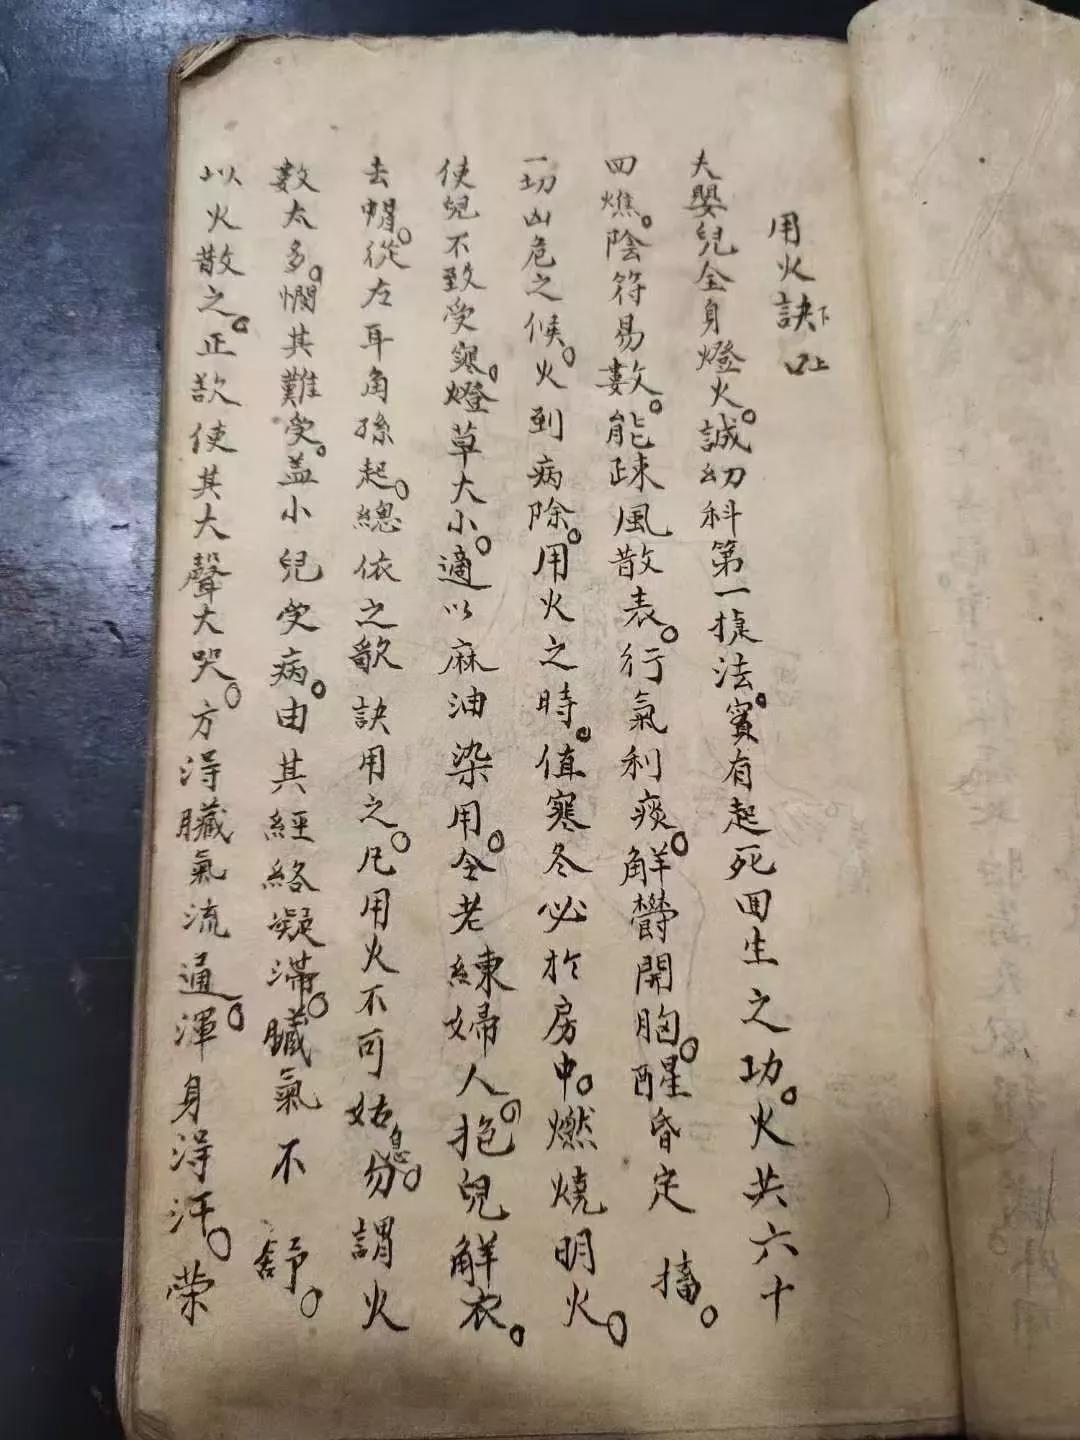 用火訣下口上
夫嬰兒全身燈火。誠幼科第一捷法。實有起死回生之功。火共六十
四燋。陰符易數。能疎風散表。行氣利痰。解欝開胸。醒昏定搐。
一切凶危之候。火到病除。用火之時。值寒冬必於房中。燃燒明火。
使兒不致受寒。燈草大小。適以麻油染用。全老練婦人。抱兒解衣。
去帽。從左耳角孫起。總依之歌訣用之。凡用火不可姑息。勿謂火
數太多。憫其難受。盖小兒受病。由其經絡凝滯。臟氣不舒。
以火散之。正欲使其大聲大哭。方得臟氣流通。渾身得汗。荣